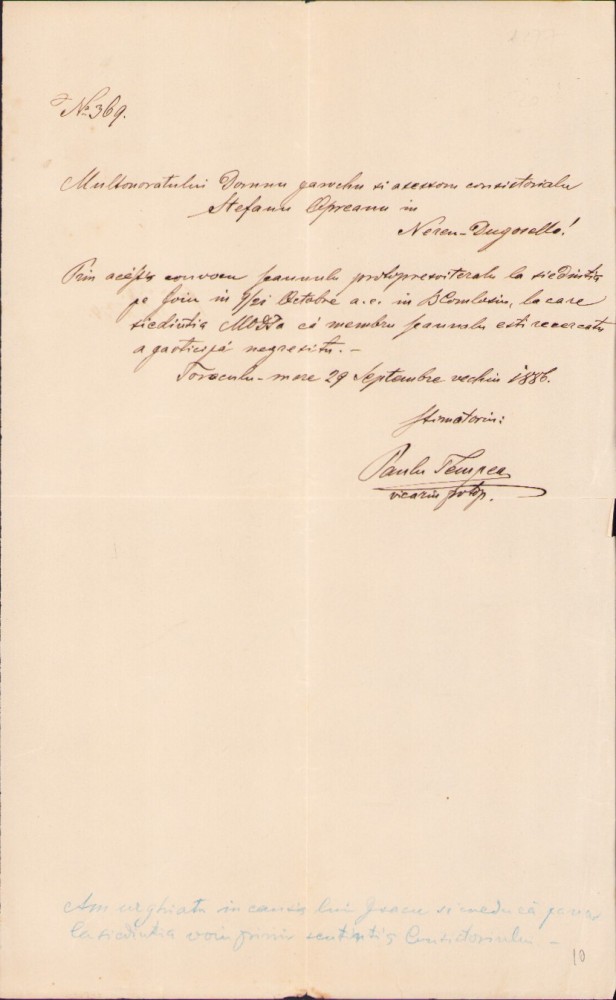 No 369.
Multonoratului Domnu parochu si asessoru consistorialu
Stefanu Opreanu in
Nereu-Dugoselo!
Prin acésta convocu scaunulu protopresviteralu la siedintia
pe joiu in 9/21 Octobre a.c. in B Comlosiu, la care
siedintia MODTa că membru scaunalu esti recercatu
a participá negresitu. -
Toraculu-mare 29 Septembre vechiu 1886.
Stimatoriu:
Paulu Tempea
vicariu protop.
Am urghiatu in causa lui si credu că pana
la siedintia voiu primi sentintia Consistoriului -
10